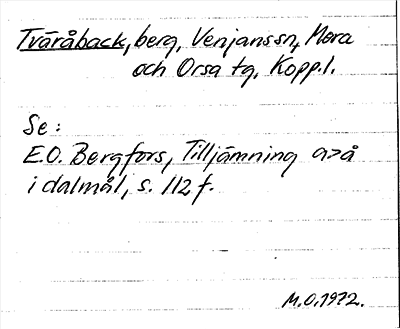 Tväråback, berg, Venjanssn, Mora
och Orsa tg, Kopp.l.
Se:
E.O. Bergfors, Tilljämning a>å
i dalmål, s. 112 f.
M.O. 1972.